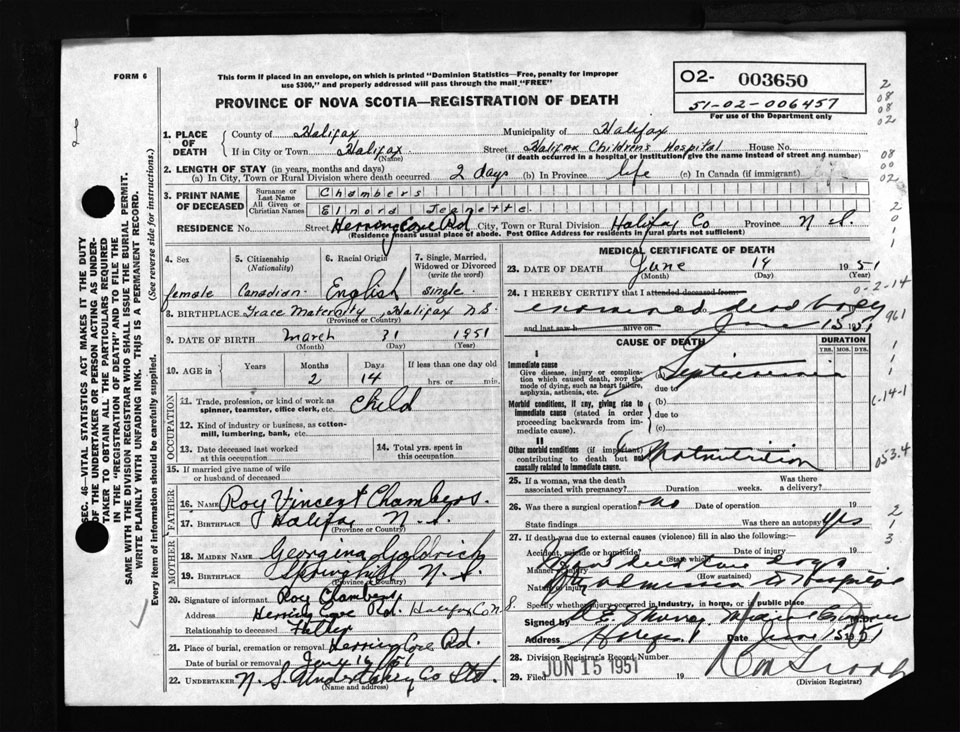 FORM 6
This form if placed in an envelope, on which is printed "Dominion Statistics—Free, penalty for improper
use $300," and properly addressed will pass through the mail "FREE"
PROVINCE OF NOVA SCOTIA—REGISTRATION OF DEATH
O2- 003650
51-02-006457
For use of the Department only
1. PLACE OF DEATH
County of Halifax Municipality of Halifax
If in City or Town Halifax Street Halifax Children's Hospital House No.
(Name) (If death occurred in a hospital or institution, give the name instead of street and number)
2. LENGTH OF STAY (in years, months and days)
(a) In City, Town or Rural Division where death occurred 2 days (b) In Province life (c) In Canada (if immigrant)
3. PRINT NAME OF DECEASED
Surname or Last Name Chambers
All Given or Christian Names Elnord Jeanette
RESIDENCE No. Street Herring Cove Rd City, Town or Rural Division Halifax Co Province N S.
(Residence means usual place of abode. Post Office Address for residents in rural parts not sufficient)
4. Sex female
5. Citizenship (Nationality) Canadian
6. Racial Origin English
7. Single, Married, Widowed or Divorced (write the word) Single
8. BIRTHPLACE Grace Maternity, Halifax N.S.
(Province or Country)
9. DATE OF BIRTH March 31 1951
(Month) (Day) (Year)
10. AGE in Years Months 2 Days 14 If less than one day old hrs. or min.
OCCUPATION
11. Trade, profession, or kind of work as spinner, teamster, office clerk, etc. Child
12. Kind of industry or business, as cotton-mill, lumbering, bank, etc.
13. Date deceased last worked at this occupation
14. Total yrs. spent in this occupation
15. If married give name of wife or husband of deceased
FATHER
16. NAME Roy Vincent Chambers.
17. BIRTHPLACE Halifax N.S.
(Province or Country)
MOTHER
18. MAIDEN NAME Georgina Goldrich
19. BIRTHPLACE Springhill N.S.
(Province or Country)
20. Signature of informant Roy Chambers
Address Herring Cove Rd. Halifax Co N.S.
Relationship to deceased Father
21. Place of burial, cremation or removal Herring Cove Rd.
Date of burial or removal
22. UNDERTAKER N. S. Undertaking Co Ltd.
(Name and address)
MEDICAL CERTIFICATE OF DEATH
23. DATE OF DEATH June 14 1951
(Month) (Day) (Year)
24. I HEREBY CERTIFY that I attended deceased from
examined dead body
and last saw h alive on June 15 1951
CAUSE OF DEATH
DURATION
YRS. MOS. DYS.
I
Immediate cause
Give disease, injury or complication which caused death, not the mode of dying, such as heart failure, asphyxia, asthenia, etc.
(a) Septicaemia
due to
Morbid conditions, if any, giving rise to immediate cause (stated in order proceeding backwards from immediate cause).
(b)
due to
(c)
II
Other morbid conditions (if important) contributing to death but not causally related to immediate cause.
Malnutrition
25. If a woman, was the death associated with pregnancy? Duration weeks. Was there a delivery?
26. Was there a surgical operation? no Date of operation 19
State findings Was there an autopsy? yes
27. If death was due to external causes (violence) fill in also the following:—
Accident, suicide or homicide? (State which) Date of injury 19
Manner of injury (How sustained)
Nature of injury admission to Hospital
Specify whether injury occurred in industry, in home, or in public place
Signed by
Address Halifax Date June 15 1951
28. Division Registrar's Record Number
29. Filed JUN 15 1951 19
(Division Registrar)
SEC. 46—VITAL STATISTICS ACT MAKES IT THE DUTY
OF THE UNDERTAKER OR PERSON ACTING AS UNDERTAKER TO OBTAIN ALL THE PARTICULARS REQUIRED
IN THE "REGISTRATION OF DEATH" AND TO FILE THE
SAME WITH THE DIVISION REGISTRAR WHO SHALL ISSUE THE BURIAL PERMIT.
WRITE PLAINLY WITH UNFADING INK. THIS IS A PERMANENT RECORD.
Every item of information should be carefully supplied. (See reverse side for instructions.)